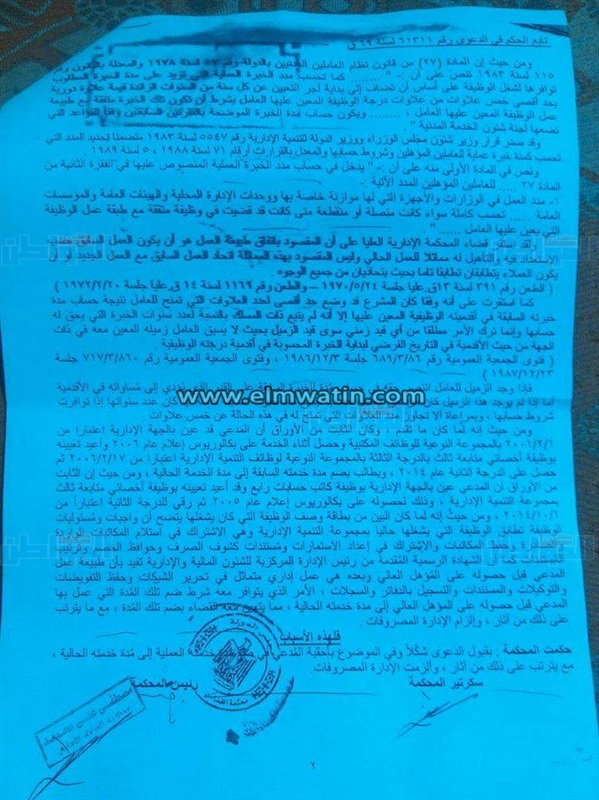 تابع الحكم في الدعوى رقم ٦١٣١١ لسنة ٦٩ ق
ومن حيث إن المادة (٢٧) من قانون نظام العاملين المدنيين بالدولة رقم ٤٧ لسنة ١٩٧٨ والمعدلة بالقانون رقم
١١٥ لسنة ١٩٨٣ تنص على أن :- "...... كما تحسب مدة الخبرة العملية التي تزيد على مدة الخبرة المطلوب
توافرها لشغل الوظيفة على أساس أن تضاف إلى بداية أجر التعيين عن كل سنة من السنوات الزائدة قيمة علاوة دورية
بحد أقصى خمس علاوات من علاوات درجة الوظيفة المعين عليها العامل بشرط أن تكون تلك الخبرة متفقة مع طبيعة
عمل الوظيفة المعين عليها العامل ، ........ ويكون حساب مدة الخبرة الموضحة بالفقرتين السابقتين وفقا للقواعد التي
تضعها لجنة شئون الخدمة المدنية "
وقد صدر قرار وزير شئون مجلس الوزراء ووزير الدولة للتنمية الإدارية رقم ٥٥٤٧ لسنة ١٩٨٣ متضمنا تحديد المدد التي
تحسب كمدة خبرة عملية للعاملين المؤهلين وشروط حسابها والمعدل بالقرارات أرقام ٧١ لسنة ١٩٨٨ ، ٥ لسنة ١٩٨٩
ونص في المادة الأولى منه على أن :- " يدخل في حساب مدد الخبرة العملية المنصوص عليها في الفقرة الثانية من
المادة ٢٧ ..... للعاملين المؤهلين المدد الآتية :-
١- مدد العمل في الوزارات والأجهزة التي لها موازنة خاصة بها ووحدات الإدارة المحلية والهيئات العامة والمؤسسات
العامة ..... تحسب كاملة سواء كانت متصلة أو منقطعة متى كانت قد قضيت في وظيفة متفقة مع طبقة عمل الوظيفة
التي يعين عليها العامل ....."
ولقد استقر قضاء المحكمة الإدارية العليا على أن المقصود باتفاق طبيعة العمل هو أن يكون العمل السابق
الاستعداد فيه والتأهيل له مماثلا للعمل الحالي وليس المقصود بهذه المماثلة اتحاد العمل السابق مع العمل الجديد أو أن
يكون العملاء يتطابقان تطابقا تاما بحيث يتحاذيان من جميع الوجوه.
( الطعن رقم ٣٩١ لسنة ١٣ق.عليا جلسة ١٩٧٠/٥/٢٤ – والطعن رقم ١١٦٩ لسنة ١٤ ق.عليا جلسة ١٩٧٢/٢/٢٠ )
كما استقرت على أنه وفقا كان المشرع قد وضع حد أقصى لعدد العلاوات التي تمنح للعامل نتيجة حساب مدة
خبرته السابقة في أقدميته الوظيفية المعين عليها إلا أنه لم يتبع ذات المسلك بالنسبة لعدد سنوات الخبرة التي يحق له
حسابها وإنما ترك الأمر مطلقا من أي قيد زمني سوى قيد الزميل بحيث لا يسبق العامل زميله المعين معه في ذات
الجهة من حيث الأقدمية في التاريخ الفرضي لبداية الخبرة المحسوبة في أقدمية درجته الوظيفية .
( فتوى الجمعية العمومية رقم ٦٨٩/٣/٨٦ جلسة ١٩٨٦/١٢/٣ ، وفتوى الجمعية العمومية رقم ٧١٧/٣/٨٦٠ جلسة
١٩٨٧/١٢/٢٣ )
www.elmwatin.com
فإذا وجد الزميل للعامل انحصر حقه في حساب مدة الخبرة العملية على القدر الذي يؤدي إلى مساواته في الأقدمية
أما إذا لم يوجد هذا الزميل كان عدد سنواتها إذا توافرت
شروط حسابها ، وبمراعاة ألا تجاوز عدد العلاوات التي تمنح له في هذه الحالة عن خمس علاوات .
ومن حيث إنه لما كان ما تقدم ، وكان الثابت من الأوراق أن المدعي قد عين بالجهة الإدارية اعتبارا من
٢٠٠٦/٢/١ بالمجموعة النوعية للوظائف المكتبية وحصل أثناء الخدمة على بكالوريوس إعلام عام ٢٠٠٦ وأعيد تعيينه
بوظيفة أخصائي متابعة ثالث بالدرجة الثالثة بالمجموعة النوعية لوظائف التنمية الإدارية اعتبارا من ٢٠٠٦/٢/١٧ ثم
حصل على الدرجة الثانية عام ٢٠١٤ ، ويطالب بضم مدة خدمته السابقة إلى مدة الخدمة الحالية ، ومن حيث إن الثابت
من الأوراق أن المدعي عين بالجهة الإدارية بوظيفة كاتب حسابات رابع وقد أعيد تعيينه بوظيفة أخصائي متابعة ثالث
بمجموعة التنمية الإدارية ، وذلك لحصوله على بكالوريوس إعلام عام ٢٠٠٥ ثم رقي للدرجة الثانية اعتباراً من
٢٠١٤/١٠/١ ، ومن حيث إنه لما كان البين من بطاقة وصف الوظيفة التي كان يشغلها يتضح أن واجبات ومسئوليات
الوظيفة تطابق الوظيفة التي يشغلها حاليا بمجموعة التنمية الإدارية وهي الاشتراك في استلام المكاتبات الواردة
والصادرة وحفظ المكاتبات والاشتراك في إعداد الاستمارات ومستندات كشوف الصرف وحوافظ الحفظ وترتيب
المستندات كما أن الشهادة الرسمية المقدمة من رئيس الإدارة المركزية للشئون المالية والإدارية تفيد بأن طبيعة عمل
المدعي قبل حصوله على المؤهل العالي وبعده هي عمل إداري متماثل في تحرير الشيكات وحفظ التفويضات
والتوكيلات والمستندات والتسجيل بالدفاتر والسجلات ، الأمر الذي يتوافر معه شرط ضم تلك المدة التي عمل بها
قبل حصوله على المؤهل العالي إلى مدة خدمته الحالية ، مما يتعين معه القضاء بضم تلك المُدة ، مع ما يترتب
على ذلك من آثار ، وإلزام الإدارة المصروفات.
فلهذه الأسباب
حكمت المحكمة : بقبول الدعوى شكلاً وفي الموضوع بأحقية المُدعي في خدمته العملية إلى مُدة خدمته الحالية ،
مع ما يترتب على ذلك من آثار ، وألزمت الإدارة المصروفات.
سكرتير المحكمة
رئيس المحكمة
٢